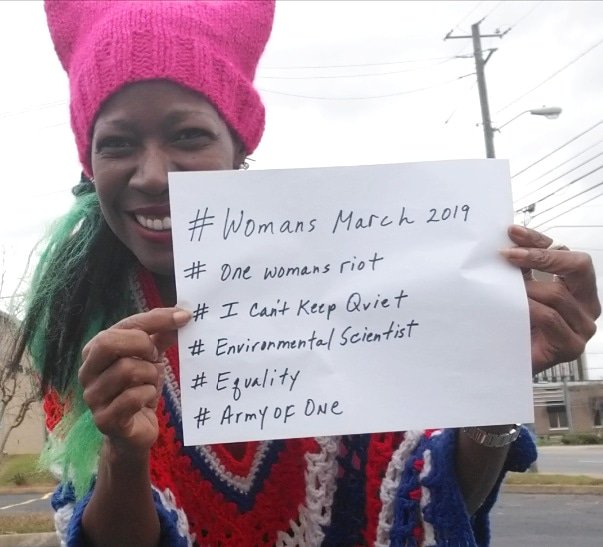 # Womans March 2019
# One womans riot
# I Can't Keep Quiet
# Environmental Scientist
# Equality
# Army of One